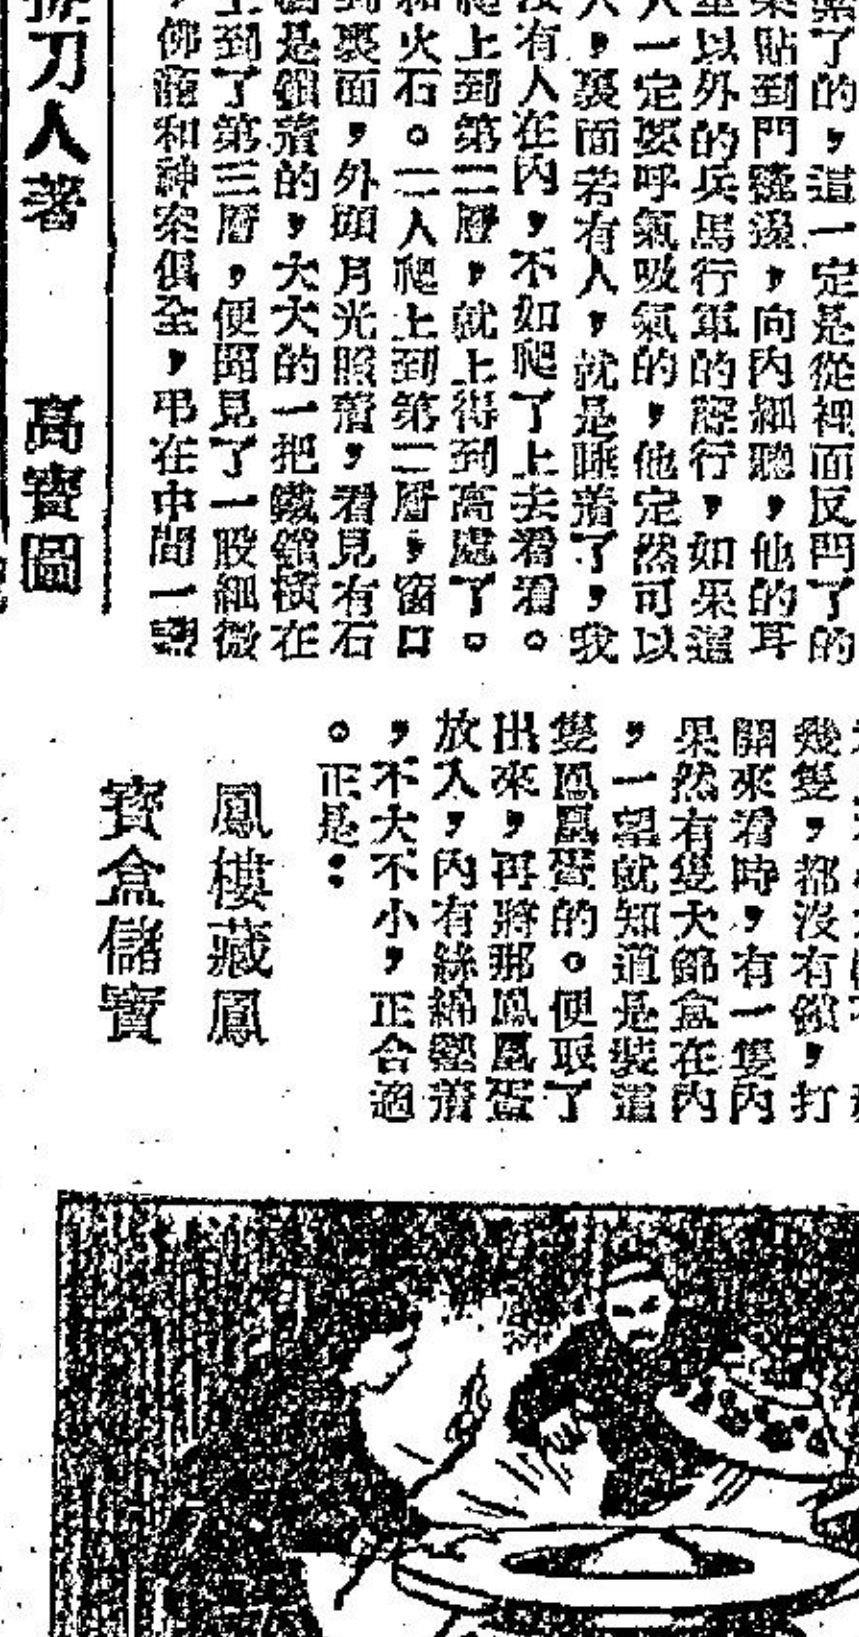 緊了的，這一定是從裡面反閂了的
貼到門邊，向內細聽，他的耳
里以外的兵馬行軍的經行，如果這
人一定要呼氣吸氣的，他定然可以
人，裏面若有人，就是睡着了，我
沒有人在內，不如爬了上去看看。
爬上到第二層，就上得到高處了。
和火石。二人爬上到第二層，窗口
到裏面，外頭月光照着，看見有石
是鎖着的，大大的一把鐵鎖橫在
上到了第三層，便聞見了一股細微
，佛龕和神案俱全，弔在中間一
刀人著 高寶圖
幾隻，都沒有，打
開來看時，有一隻內
果然有隻大錦盒在內
，一望就知道是裝這
隻鳳凰蛋的。便取了
出來，再將那鳳凰蛋
放入，內有絲綿墊着
，不大不小，正合適
。正是：
鳳樓藏鳳
寶盒儲寶